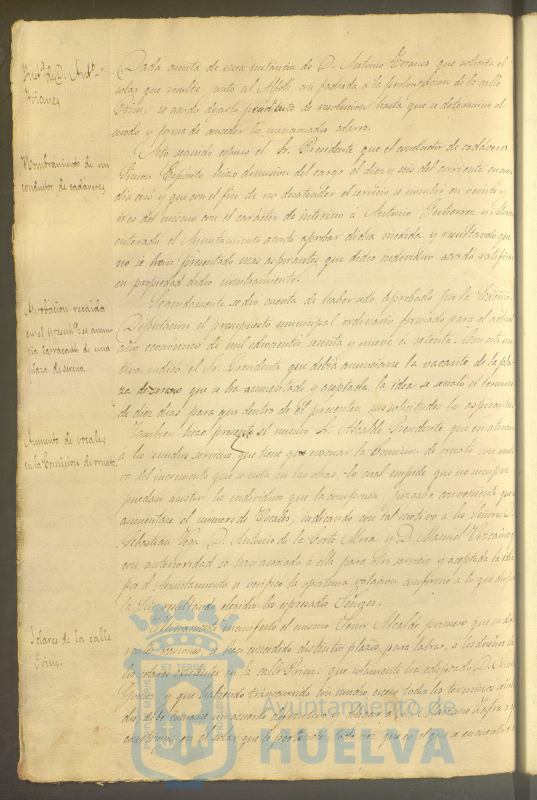 Dada cuenta de una instancia de D. Antonio que solicita el
solar que resulte junto al con fachada a la prolongacion de la calle
Prim, se acordó dejarlo pendiente de resolucion hasta que se determine el
modo y forma de conceder los mencionados solares.
Nombramiento de un
conductor de cadaveres
Acto seguido espuso el Sr. Presidente que el conductor de cadáveres
hizo dimision del cargo el diez y seis del corriente
y que con el fin de no desatender el servicio se nombró en veinte y
tres del mismo con el carácter de interino á Antonio Gutierrez y
enterado el Ayuntamiento acordó aprobar dicha medida y resultando que
no se han presentado mas aspirantes que dicho individuo acordó ratificar
en propiedad dicho nombramiento.
Aprobacion recaida
en el presupto. se anun
cia la vacante de una
plaza de sereno.
Seguidamente se dio cuenta de haber sido aprobado por la Excma.
Diputacion el presupuesto municipal ordinario formado para el actual
año económico de mil ochocientos sesenta y nueve á setenta. Con este mo
tivo indicó el Sr. Presidente que debia anunciarse la vacante de la pla
za de sereno que se ha aumentado y aceptada la idea se señaló el término
de diez dias para que dentro de él presenten sus solicitudes los aspirantes.
Aumento de vocales
en la Comision de ornato.
Tambien hizo presente el mismo Sr. Alcalde Presidente que en atencion
á los muchos servicios que tiene que evacuar la Comision de ornato, con moti
vo del incremento que se nota en las obras, lo cual impide que no siempre
puedan asistir los individuos que la componen, juzgaba conveniente que
aumentase el número de Vocales, indicando con tal motivo á los Señores
Sebastian Vega, D. Antonio de la Corte Mora y D. Manuel Vizcaino
con anterioridad se han asociado á ella para otro servicio y aceptada la idea
por el Ayuntamiento se verificó la oportuna votacion conforme á lo que
la Ley, resultando elegidos los espresados Señores.
Solares de la calle
Prim.
Ultimamente manifestó el mismo Señor Alcalde primero que en dife
rentes ocasiones se han concedido distintos plazos para labrar, á los dueños de
los solares existentes en la calle Prim: que solamente ha edificado D.
y que habiendo transcurrido con mucho esceso todos los terminos
debe tomarse un acuerdo definitivo y obligar á
construir en el solar que le pertenece, toda vez que es el que se encuentra
Ayuntamiento de
HUELVA